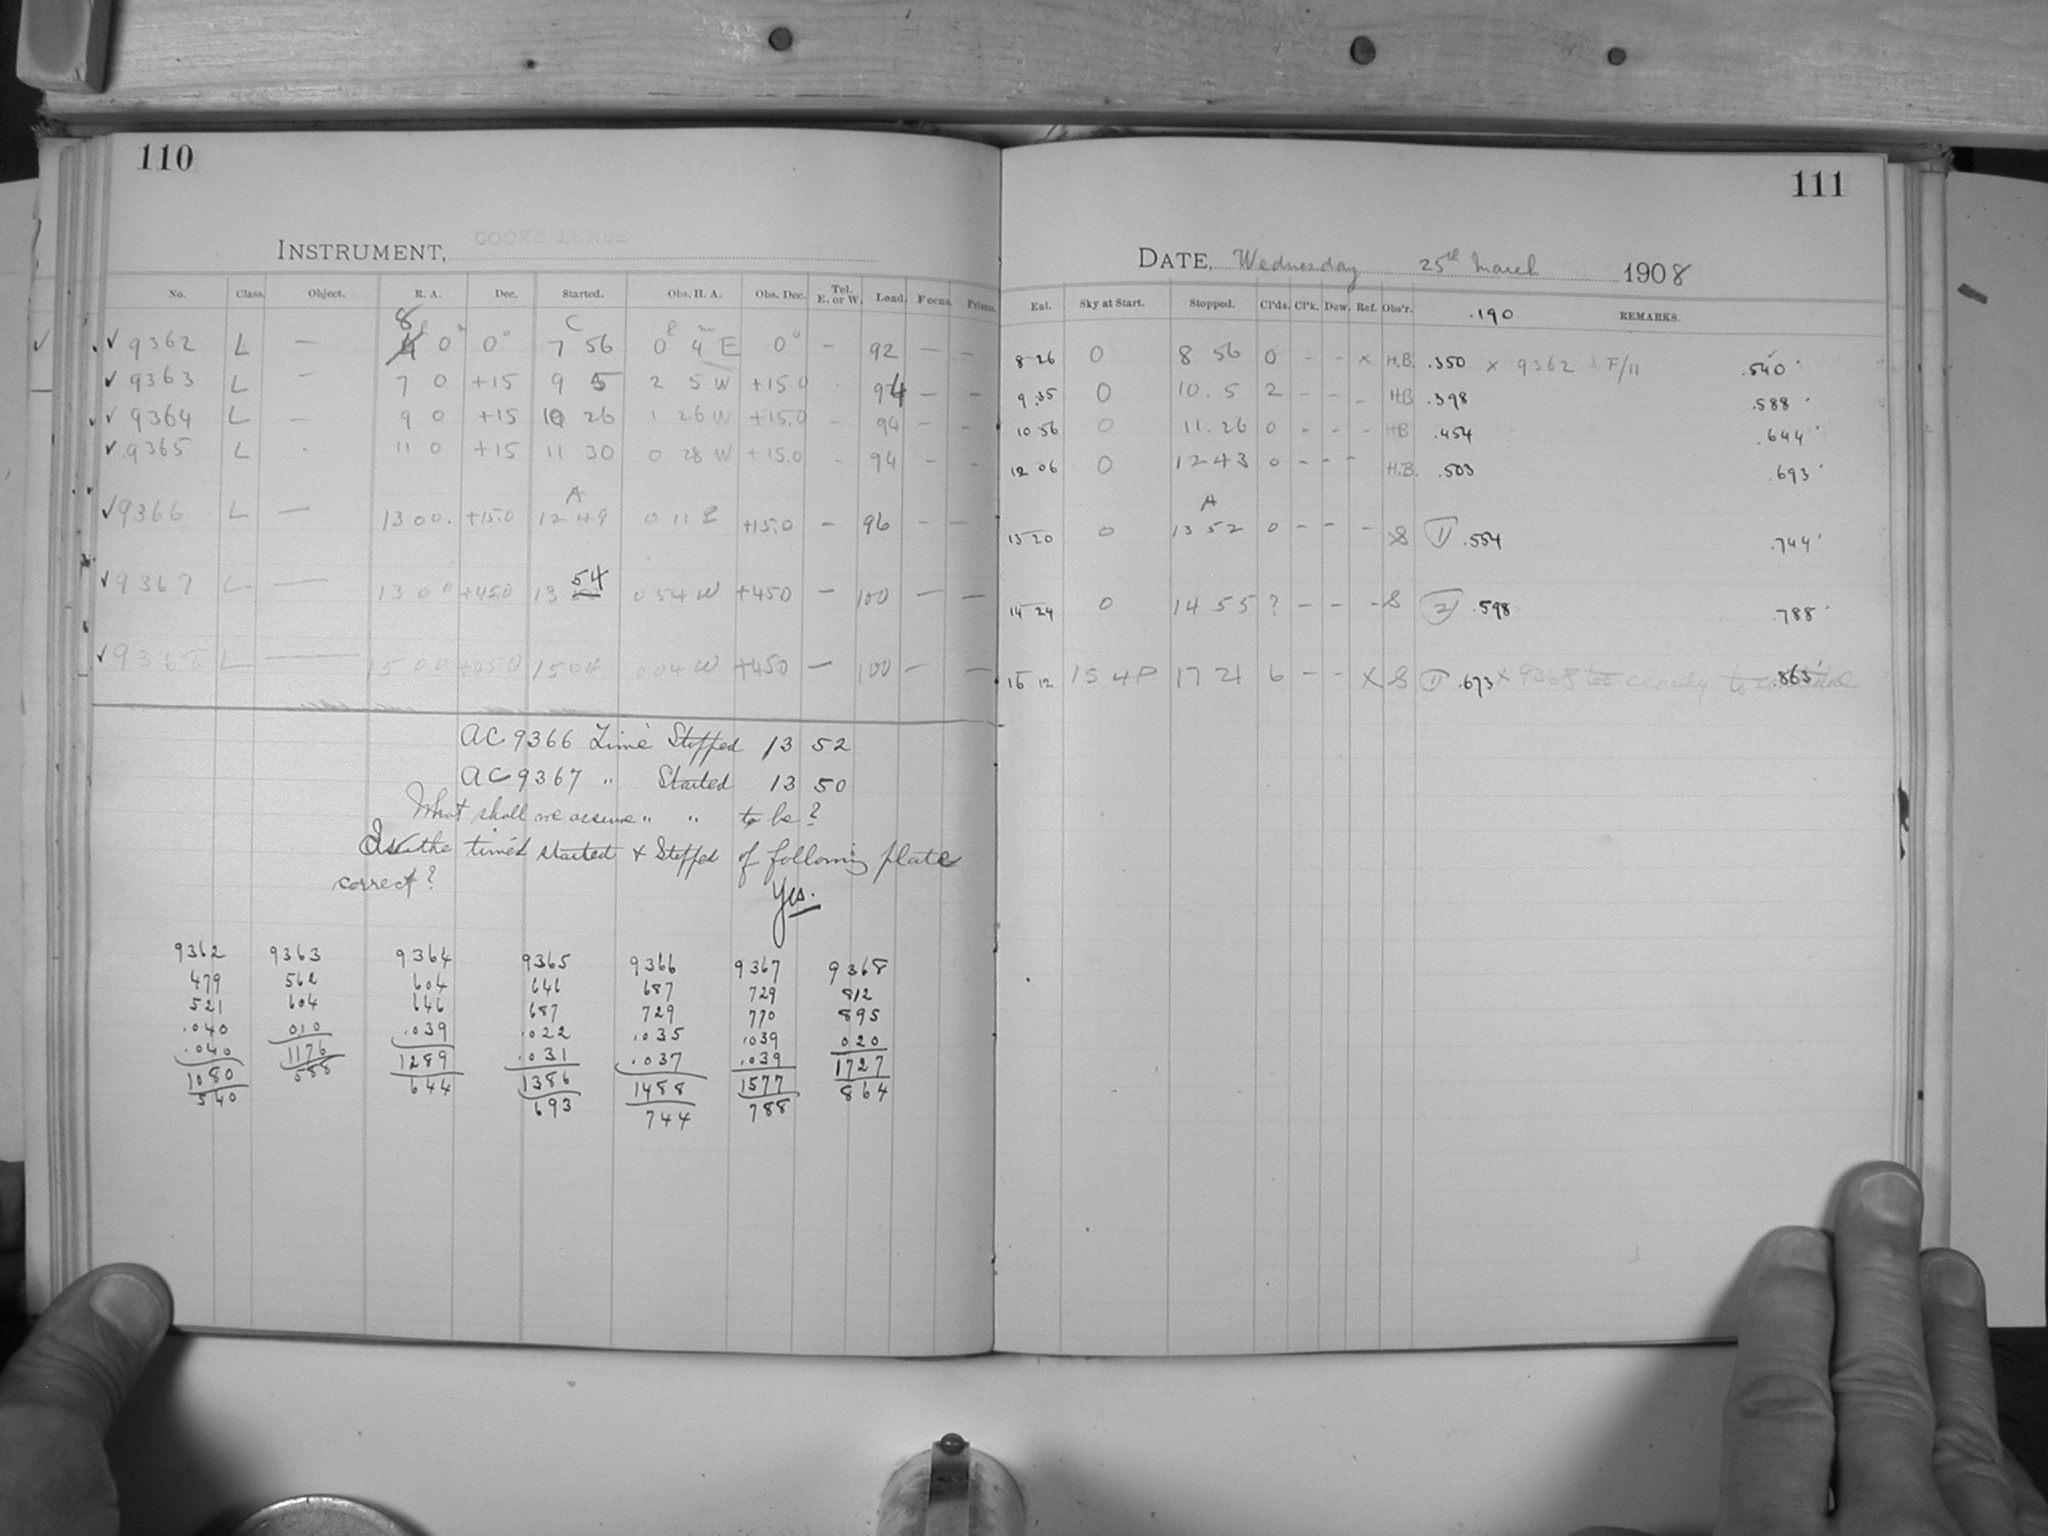 110
INSTRUMENT, COOKE LENSE
No. Class. Object. R. A. Dec. Started. Obs. H. A. Obs. Dec. Tel. E. or W. Load. Focus. Prisms.
8 C
✓ 9362 L — 0 0° 7 56 0 4 E 0° — 92 — —
✓ 9363 L — 7 0 +15 9 5 2 5 W +15.0 94 — —
✓ 9364 L — 9 0 +15 10 26 1 26 W +15.0 — 94 — —
✓ 9365 L 11 0 +15 11 30 0 28 W +15.0 — 94 — —
A
✓ 9366 L — 13 00. +15.0 12 49 0 11 E +15.0 — 96 — —
54
✓ 9367 L — 13 00 +45.0 13 0 54 W +450 — 100 — —
✓ 9368 L — 15 00 +450 15 04 0 04 W +450 — 100 — —
AC 9366 Time Stopped 13 52
AC 9367 " Started 13 50
What shall we assume " " to be?
Is the time's started & Stopped of following plate
correct?
Yes.
9362 9363 9364 9365 9366 9367 9368
479 562 604 646 687 729 812
521 604 646 687 729 770 895
.040 010 .039 .022 .035 .039 020
.040 1176 1289 .031 .037 .039 1727
1080 588 644 1386 1488 1577 864
540 693 744 788
111
DATE, Wednesday 25th March 1908
Ent. Sky at Start. Stopped. Cl'ds. Cl'k. Dew. Ref. Obs'r. .190 REMARKS.
8 26 0 8 56 0 - - x H.B. .350 x 9362 F/11 .540
9.35 0 10.5 2 - - - HB .398 .588
10 56 0 11.26 0 - - - HB .454 .644
12 06 0 12 43 0 - - - H.B. .503 .693
A
13 20 0 13 52 0 - - - S 1) .554 .744
14 24 0 14 55 ? - - - S 2) .598 .788
16 12 15 4P 17 21 6 - - X S 1) .673 x 9368 too cloudy to .863